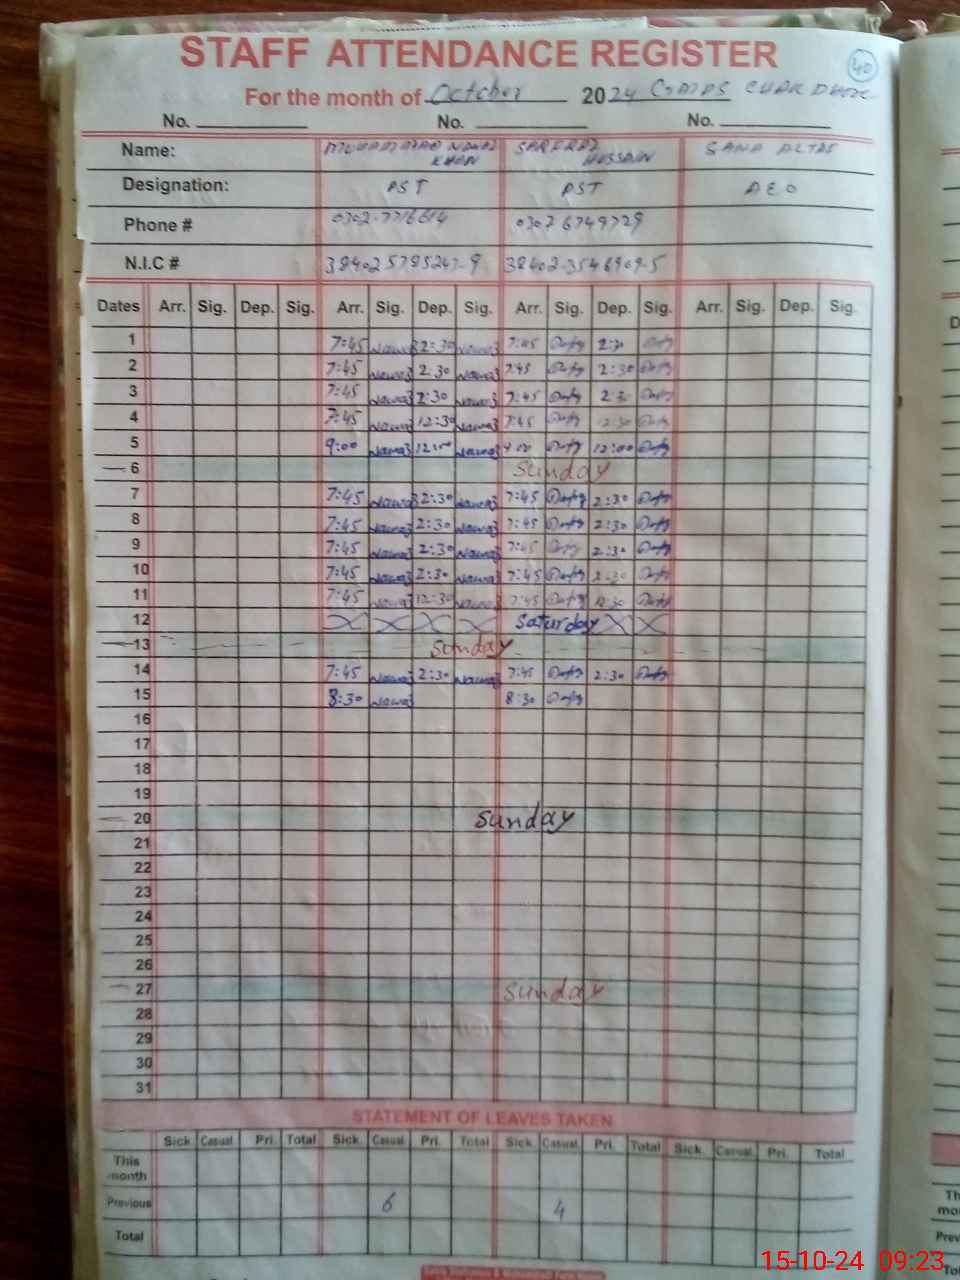 STAFF ATTENDANCE REGISTER
40
For the month of October 2024
No. No. No.
Name: KHAN HUSSAIN SANA ALTAF
Designation: PST PST AEO
Phone # 0302-7716614 0307 6749729
N.I.C #
Dates Arr. Sig. Dep. Sig. Arr. Sig. Dep. Sig. Arr. Sig. Dep. Sig. Arr. Sig. Dep. Sig.
1 7:45 Nawaz 2:30 Nawaz 7:45 2:30
2 7:45 Nawaz 2:30 Nawaz 7:45 2:30
3 7:45 Nawaz 2:30 Nawaz 7:45 2:30
4 7:45 Nawaz 12:30 Nawaz 7:45 12:30
5 9:00 Nawaz 12:00 Nawaz 9:00 12:00
6 Sunday
7 7:45 Nawaz 2:30 Nawaz 7:45 2:30
8 7:45 Nawaz 2:30 Nawaz 7:45 2:30
9 7:45 Nawaz 2:30 Nawaz 7:45 2:30
10 7:45 Nawaz 2:30 Nawaz 7:45 2:30
11 7:45 Nawaz 12:30 Nawaz 7:45 12:30
12 Saturday
13 Sunday
14 7:45 Nawaz 2:30 Nawaz 7:45 2:30
15 8:30 Nawaz 8:30
16
17
18
19
20 Sunday
21
22
23
24
25
26
27 Sunday
28
29
30
31
STATEMENT OF LEAVES TAKEN
Sick Casual Pri. Total Sick Casual Pri. Total Sick Casual Pri. Total Sick Casual Pri. Total
This
month
Previous 6 4
Total
15-10-24 09:23